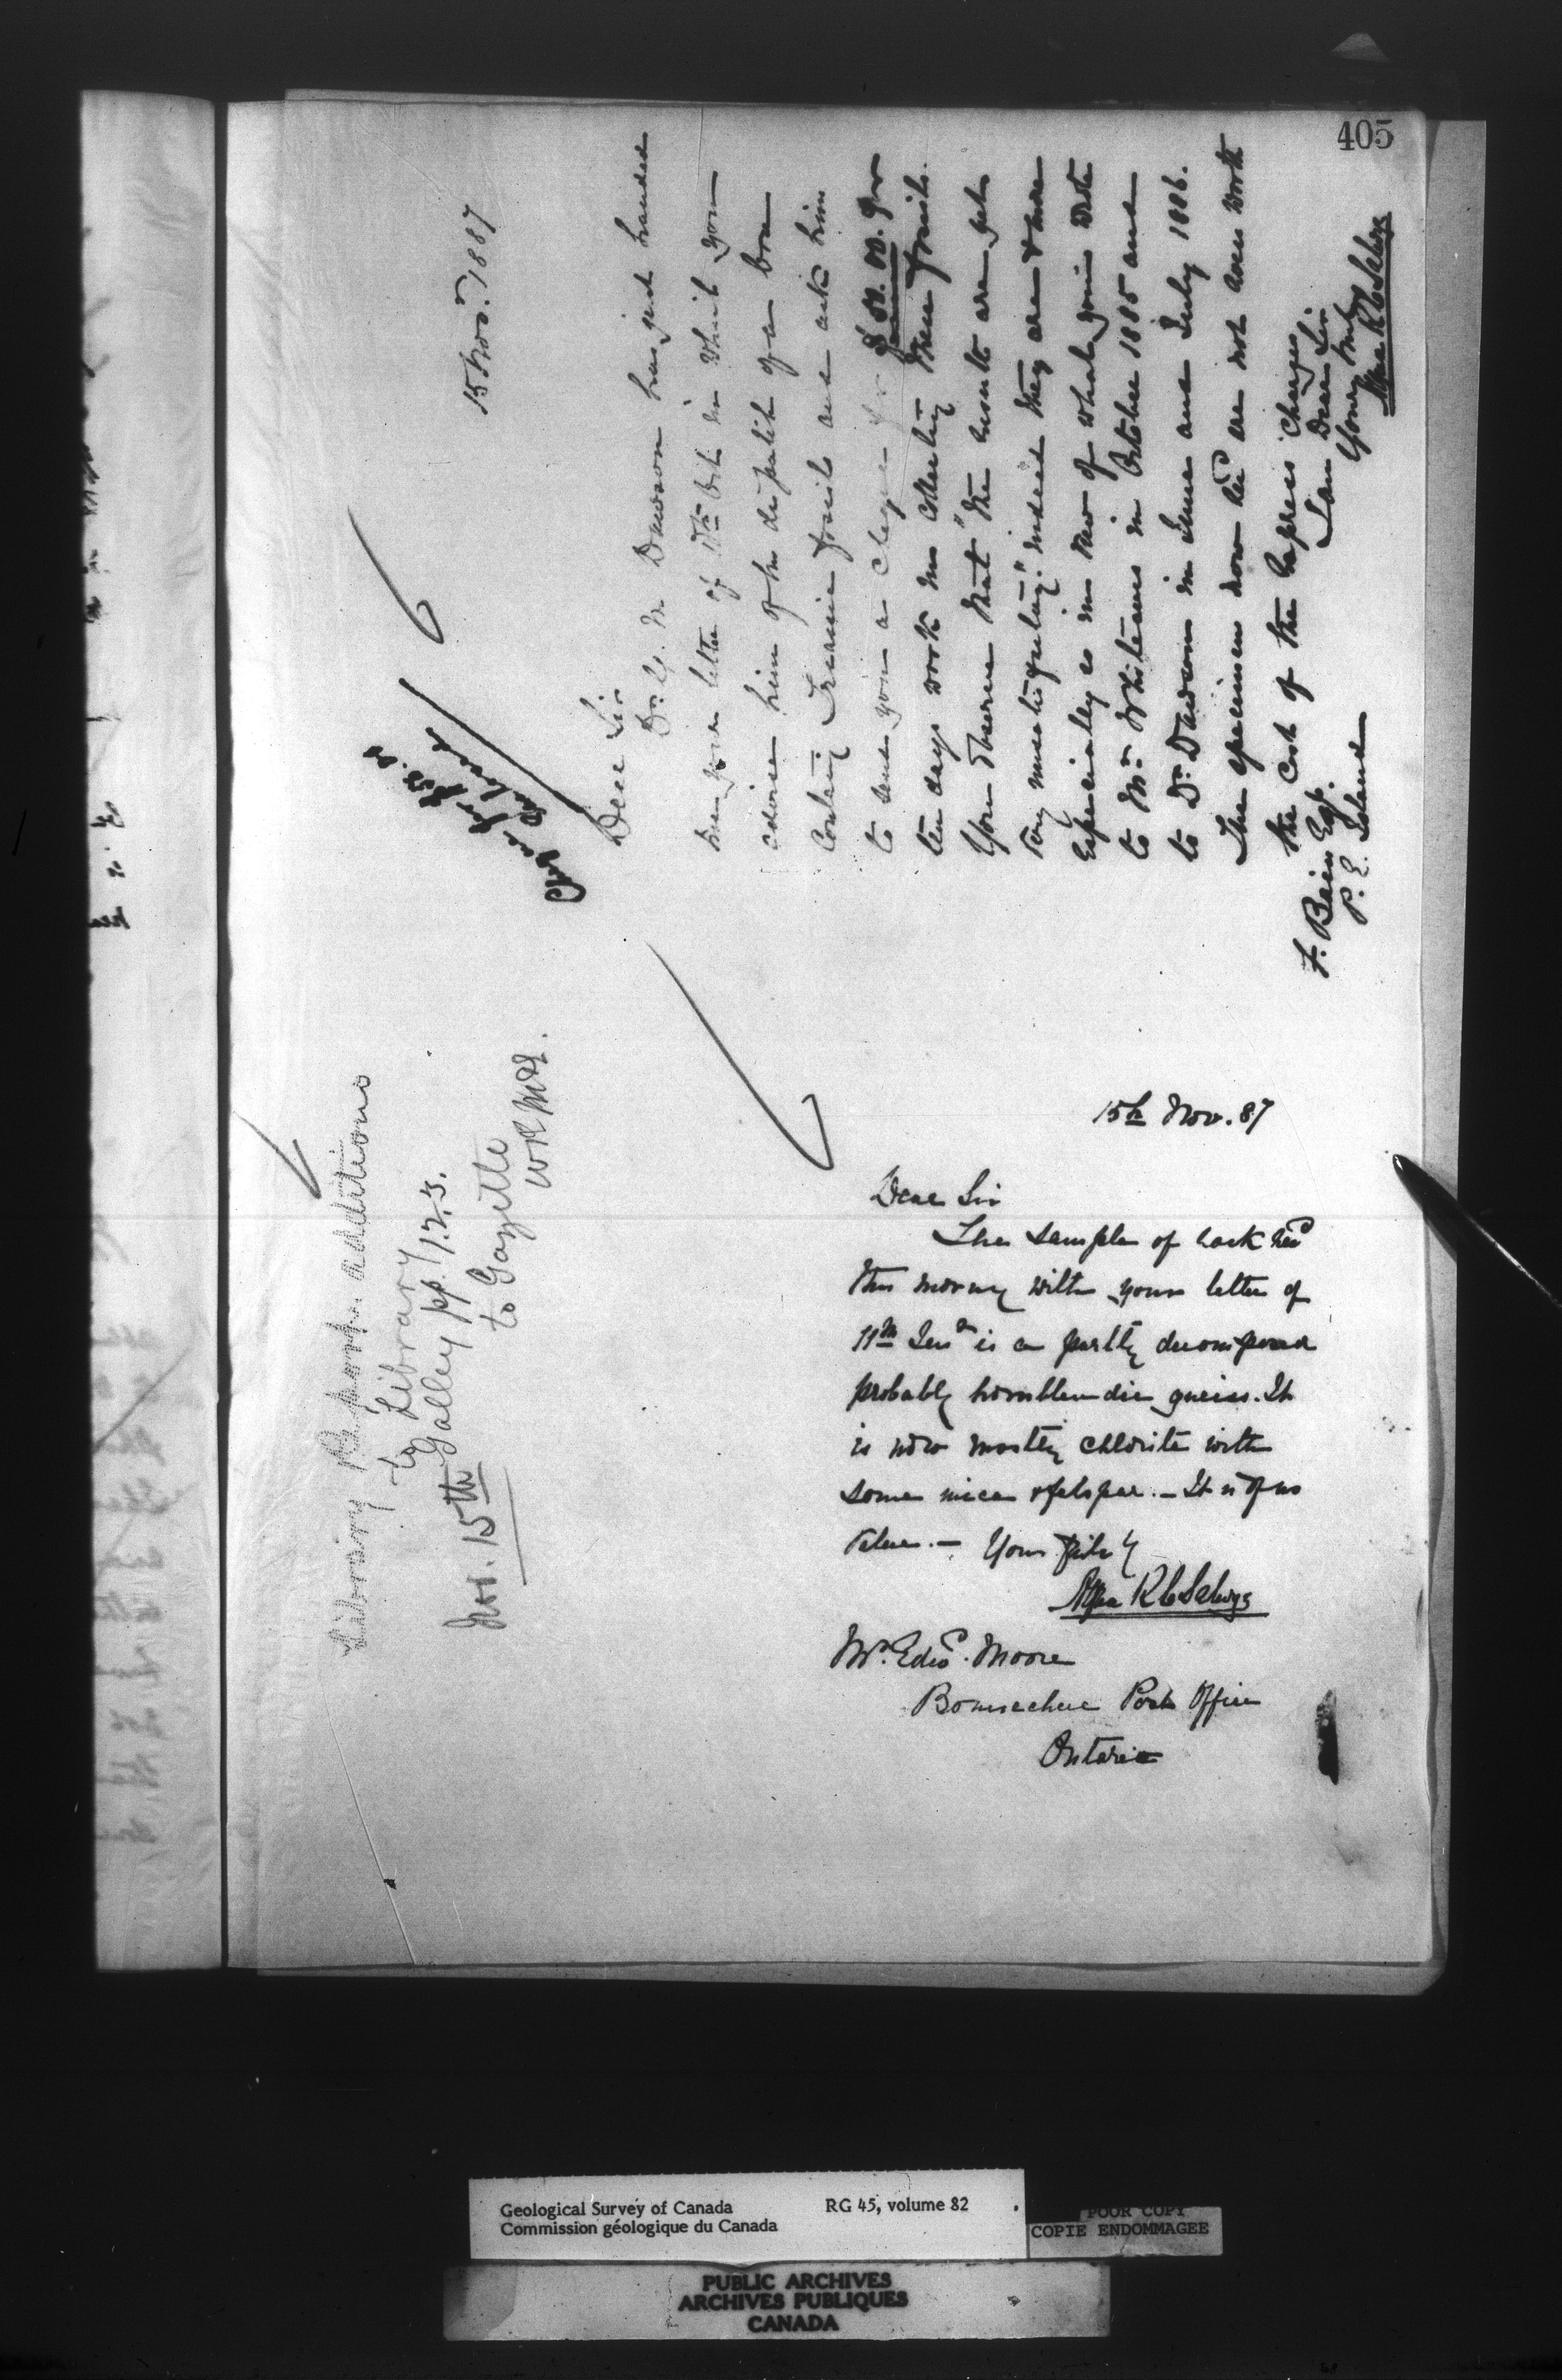 405
15 Nov.r 1887
Cheque for $50.00
Dear Sir
Dr. G. M. Dawson has just handed
me your letter of 11th Oct. in which you
advise him of the dispatch of a box
containg Triassic fossils and ask him
to send you a cheque for $50.00. for
ten days work in collecting these fossils.
You observe that "the results are yet
very unsatisfactory." indeed they are & more
especially so in view of what you wrote
to Mr. Whiteaves in October 1885 and
to Dr. Dawson in June and July 1886.
The specimens now recd are not even worth
the cost of the Express charges
I am Dear Sir
Yours truly
Alfred R C Selwyn
F. Bain Esq.
P. E. Island
Library Report. additions
to Library
Galley pp. 1.2.3.
Nov. 15th to Gazette
15th Nov. 87
Dear Sir
The sample of rock recd
this morng with your letter of
11th Inst is a partly decomposed
probably hornblendic gneiss. It
is now mostly chlorite with
some mica & felspar. — It is of no
value. — Yours faithy
Alfred R C Selwyn
Mr. Edwd. Moore
Bonnechere Post Office
Ontario
Geological Survey of Canada RG 45, volume 82
Commission géologique du Canada
POOR COPY
COPIE ENDOMMAGEE
PUBLIC ARCHIVES
ARCHIVES PUBLIQUES
CANADA